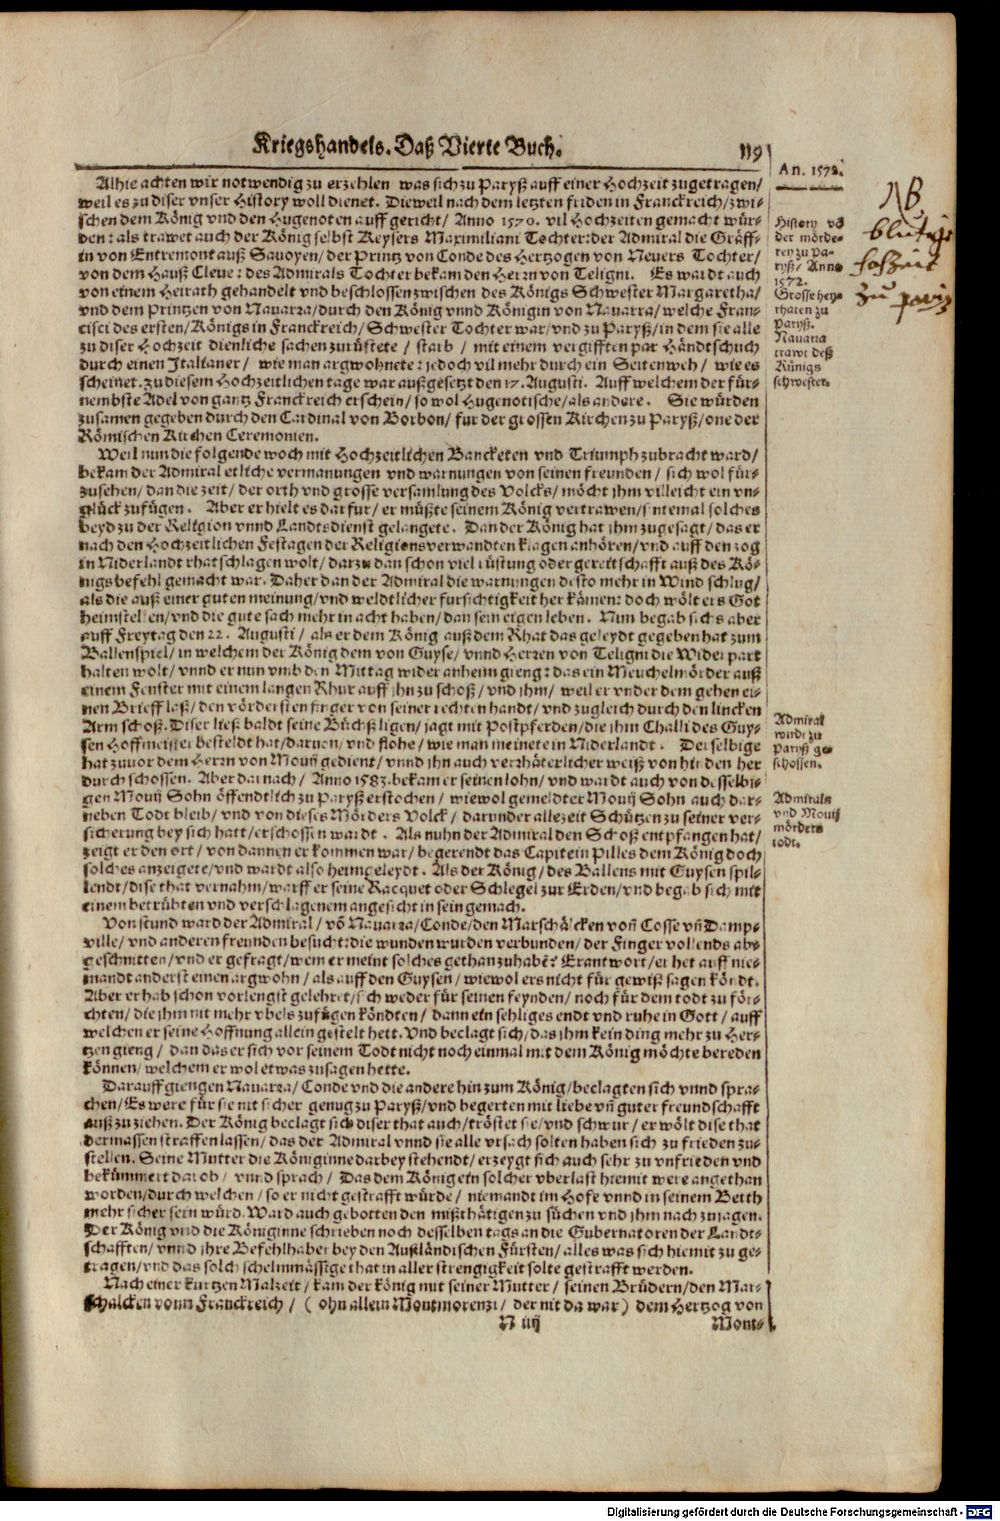 Kriegshandels. Daß Vierte Buch.
119
An. 1572.
Alhie achten wir notwendig zu erzehlen was sich zu Paryß auff einer Hochzeit zugetragen/
weil es zu diser vnser History woll dienet. Dieweil nach dem letzten friden in Franckreich/ zwi-
schen dem König vnd den Hugenoten auffgericht/ Anno 1570. vil Hochzeiten gemacht wür-
den: als trawet auch der König selbst Keysers Maximiliani Tochter: der Admiral die Gräff-
in von Entremont auß Sauoyen/ der Printz von Conde des Hertzogen von Neuers Tochter/
von dem Hauß Cleue: des Admirals Tochter bekam den Herrn von Teligni. Es wardt auch
von einem Heirath gehandelt vnd beschlossen zwischen des Königs Schwester Margaretha/
vnd dem Printzen von Nauarra/ durch den König vnnd Königin von Nauarra/ welche Fran-
cisci des ersten/ Königs in Franckreich/ Schwester Tochter war/ vnd zu Paryß/ in dem sie alle
zu diser Hochzeit dienliche sachen zurüstete / starb / mit einem vergifften par Händtschuch
durch einen Italianer / wie man argwohnete: jedoch vil mehr durch ein Seitenweh / wie es
scheinet. zu diesem Hochzeitlichen tage war außgesetzt den 17. Augusti. Auff welchem der für-
nembste Adel von gantz Franckreich erschein/ so wol Hugenotische/ als andere. Sie würden
zusamen gegeben durch den Cardinal von Borbon/ fur der grossen Kirchen zu Paryß/ one der
Römischen Kirchen Ceremonien.
Weil nun die folgende woch mit Hochzeitlichen Bancketen vnd Triumph zubracht ward/
bekam der Admiral etliche vermanungen vnd warnungen von seinen freunden / sich wol für-
zusehen/ dan die zeit/ der orth vnd grosse versamlung des Volcks/ möcht jhm villeicht ein vn-
glück zufügen. Aber er hielt es darfur/ er müßte seinem König vertrawen/ sintemal solches
beyd zu der Religion vnnd Landtsdienst gelangete. Dan der König hat jhm zugesagt/ das er
nach den Hochzeitlichen Festagen der Religionsverwandten klagen anhören/ vnd auff den zog
in Niderlandt rhatschlagen wolt/ darzu dan schon viel rüstung oder gereitschafft auß des Kö-
nigs befehl gemacht war. Daher dan der Admiral die warnungen desto mehr in Wind schlug/
als die auß einer guten meinung/ vnd weldtlicher fursichtigkeit her kämen: doch wölt ers Got
heimstellen/ vnd die gute sach mehr in acht haben/ dan sein eigen leben. Nun begab sichs aber
auff Freytag den 22. Augusti/ als er dem König auß dem Rhat das geleydt gegeben hat zum
Ballenspiel/ in welchem der König dem von Guyse/ vnnd Herren von Teligni die Widerpart
halten wolt/ vnnd er nun vmb den Mittag wider anheim gieng: das ein Meuchelmörder auß
einem Fenster mit einem langen Rhur auff jhn zu schoß/ vnd jhm/ weil er vnder dem gehen ei-
nen Brieff laß/ den vördersten finger von seiner rechten handt/ vnd zugleich durch den lincken
Arm schoß. Diser ließ baldt seine Büchß ligen/ jagt mit Postpferden/ die jhm Challi des Guy-
sen Hoffmeister besteldt hat/ daruon/ vnd flohe/ wie man meinete in Niderlandt. Derselbige
hat zuuor dem Herrn von Mouij gedient/ vnnd jhn auch verrhäterlicher weiß von hinden her
durchschossen. Aber darnach/ Anno 1583. bekam er seinen lohn/ vnd wardt auch von desselbi-
gen Mouij Sohn öffendtlich zu Paryß erstochen/ wiewol gemeldter Mouij Sohn auch dar-
neben Todt bleib/ vnd von dieses Mörders Volck/ darunder allezeit Schützen zu seiner ver-
sicherung bey sich hatt/ erschossen wardt. Als nuhn der Admiral den Schoß entpfangen hat/
zeigt er den ort/ von dannen er kommen war/ begerendt das Capitein Pilles dem König doch
solches anzeigete/ vnd wardt also heimgeleydt. Als der König/ des Ballens mit Guysen spil-
lendt/ dise that vernahm/ warff er seine Racquet oder Schlegel zur Erden/ vnd begab sich mit
einem betrübten vnd verschlagenem angesicht in sein gemach.
Von stund ward der Admiral/ võ Nauarra/ Conde/ den Marschälcken von Cosse vñ Damp-
ville/ vnd anderen freunden besucht: die wunden wurden verbunden/ der Finger vollends ab-
geschnitten/ vnd er gefragt/ wem er meint solches gethan zuhabẽ? Er antwort/ er het auff nie-
mandt anderst einen argwohn/ als auff den Guysen/ wiewol ers nicht für gewiß sagen köndt.
Aber er hab schon vorlengst gelehret/ sich weder für seinen feynden/ noch für dem todt zu förch-
chten/ die jhm nit mehr vbels zufügen köndten/ dann ein sehliges endt vnd ruhe in Gott/ auff
welchen er seine Hoffnung allein gestelt hett. Vnd beclagt sich/ das jhm kein ding mehr zu Her-
tzen gieng/ dan das er sich vor seinem Todt nicht noch einmal mit dem König möchte bereden
können/ welchem er wol etwas zusagen hette.
Darauff giengen Nauarra/ Conde vnd die andere hin zum König/ beclagten sich vnnd spra-
chen/ Es were für sie nit sicher genug zu Paryß/ vnd begerten mit liebe vñ guter freundschafft
auß zu ziehen. Der König beclagt sich diser that auch/ tröstet sie/ vnd schwur/ er wölt dise that
dermassen straffen lassen/ das der Admiral vnnd sie alle vrsach solten haben sich zu frieden zu-
stellen. Seine Mutter die Königinne darbey stehendt/ erzeygt sich auch sehr zu vnfrieden vnd
bekümmert darob/ vnnd sprach/ Das dem König ein solcher vberlast hiemit were angethan
worden/ durch welchen/ so er nicht gestrafft würde/ niemandt im Hofe vnnd in seinem Betth
mehr sicher sein würd. Ward auch gebotten den mißthätigen zu süchen vnd jhm nach zujagen.
Der König vnd die Königinne schrieben noch desselben tags an die Gubernatoren der Landt-
schafften/ vnnd jhre Befehlhaber bey den Außländischen Fürsten/ alles was sich hiemit zu ge-
tragen/ vnd das solch schelmmässige that in aller strengigkeit solte gestrafft werden.
Nach einer kurtzen Malzeit/ kam der könig mit seiner Mutter/ seinen Brüdern/ den Mar-
schalcken vonn Franckreich/ (ohn allein Montmorenzi/ der nit da war) dem Hertzog von
N iiij
Mont-
History võ
der mörde-
rey zu Pa-
ryß/ Anno
1572.
Grosse hey-
rhaten zu
Paryß.
Nauarra
trawt deß
Künigs
schwester.
NB
blutige
hochzeit
zu pariß
Admiral
wirdt zu
Paryß ge-
schossen.
Admirals
vnd Mouij
mörders
todt.
Digitalisierung gefördert durch die Deutsche Forschungsgemeinschaft - DFG